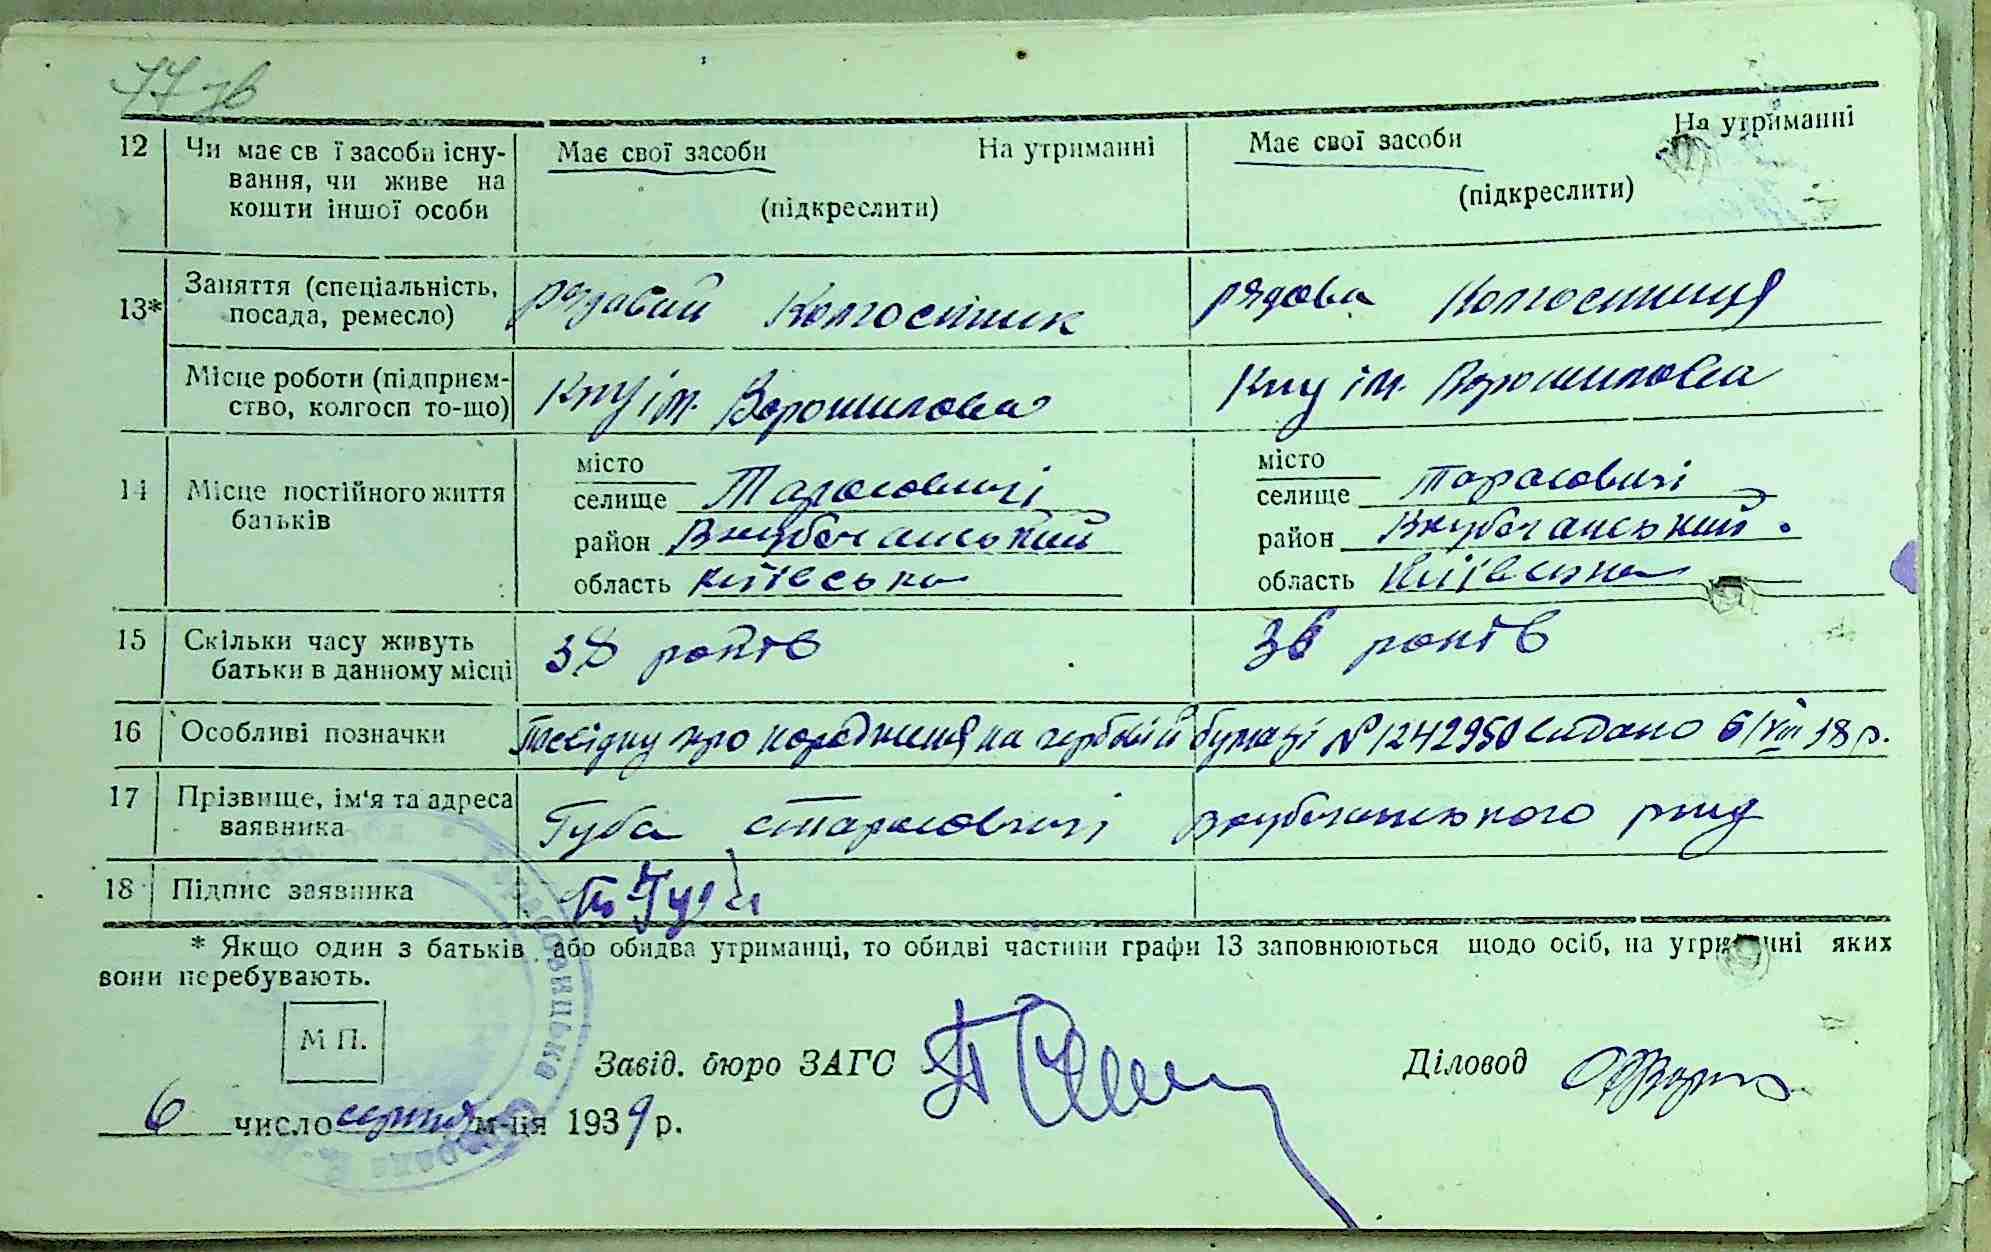 77 зв
12 Чи має св ї засоби існу- Має свої засоби На утриманні Має свої засоби На утриманні
вання, чи живе на
кошти іншої особи (підкреслити) (підкреслити)
13* Заняття (спеціальність, рядовий Колгоспник рядова Колгоспниця
посада, ремесло)
Місце роботи (підприєм- ім. Ворошилова ім. Ворошилова
ство, колгосп то-що)
14 Місце постійного життя місто місто
батьків селище Тарасовичі селище Тарасовичі
район район
область Київська область Київська
15 Скільки часу живуть 38 років 36 років
батьки в данному місці
16 Особливі позначки про народження на гербовій бумазі № 1242950 видано 6/VIII 38 р.
17 Прізвище, ім'я та адреса Губа с тарасовичі
заявника
18 Підпис заявника
* Якщо один з батьків або обидва утриманці, то обидві частини графи 13 заповнюються щодо осіб, на утри нні яких
вони перебувають.
М П.
Завід. бюро ЗАГС Діловод
6 число серпня м-ця 1939 р.